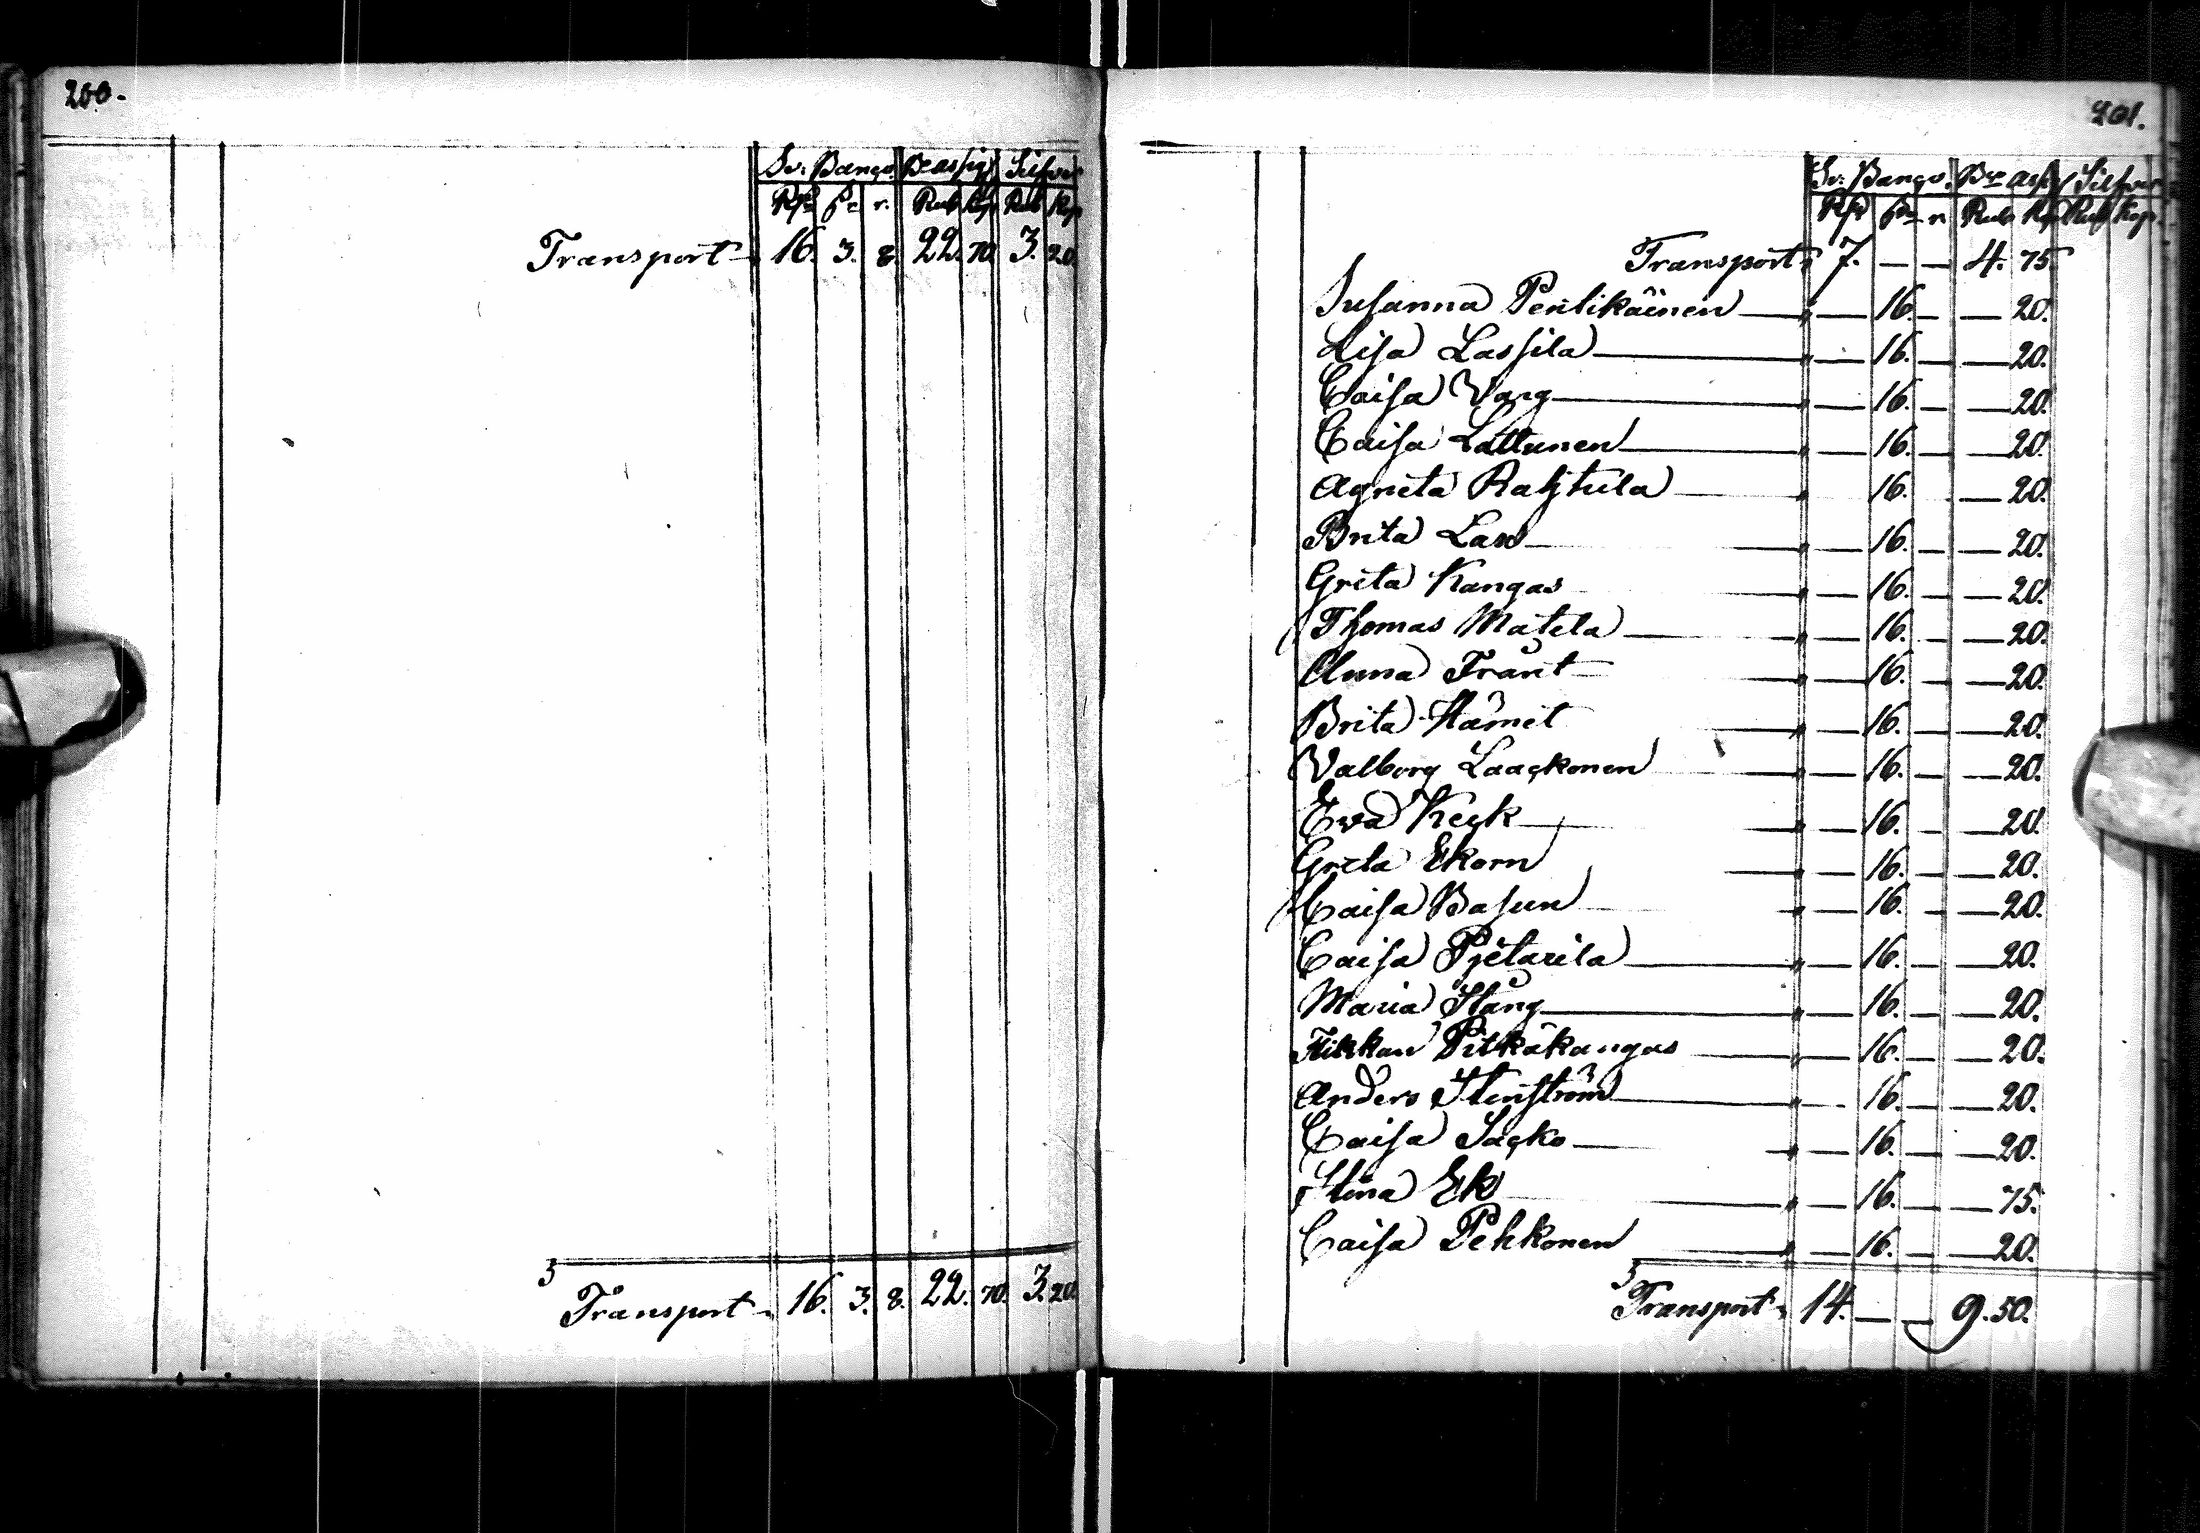 200.
Sv: Banco. Bco assig Silfver
Rdr sk r. Rub kop Rub kop
Transport 16. 3. 8. 22. 70. 3. 20.
Transport 16. 3. 8. 22. 70. 3. 20.
201.
Sv: Banco. Bco assig Silfver
Rdr sk r. Rub kop Rub kop.
Transport 7. — — 4. 75.
Susanna Pentikäinen — „ — 16. — — 20.
Lisa Lassila — „ — 16. — — 20.
Caisa Vang — „ — 16. — — 20.
Caisa Lattunen — „ — 16. — — 20.
Agneta Rahtula — „ 16. — 20.
Brita Lax — „ — 16. — — 20.
Greta Kangas — „ — 16. — — 20.
Thomas Matela — „ — 16. — — 20.
Anna Frant — „ — 16. — — 20.
Brita Hämet — „ — 16. — — 20.
Valborg Laackonen — „ — 16. — — 20.
Ewa Keck — „ — 16. — — 20.
Greta Ekorn — „ — 16. — — 20.
Caisa Basun — „ — 16. — — 20.
Caisa Pjetarila — „ — 16. — — 20.
Maria Stång — „ — 16. — — 20.
Pitkäkangas — „ — 16. — — 20.
Anders Stenström — „ — 16. — — 20.
Caisa Sacko — „ — 16. — — 20.
Stina Ek — „ — 16. — — 75.
Caisa Pehkonen — „ — 16. — — 20.
Transport 14. — — 9. 50.